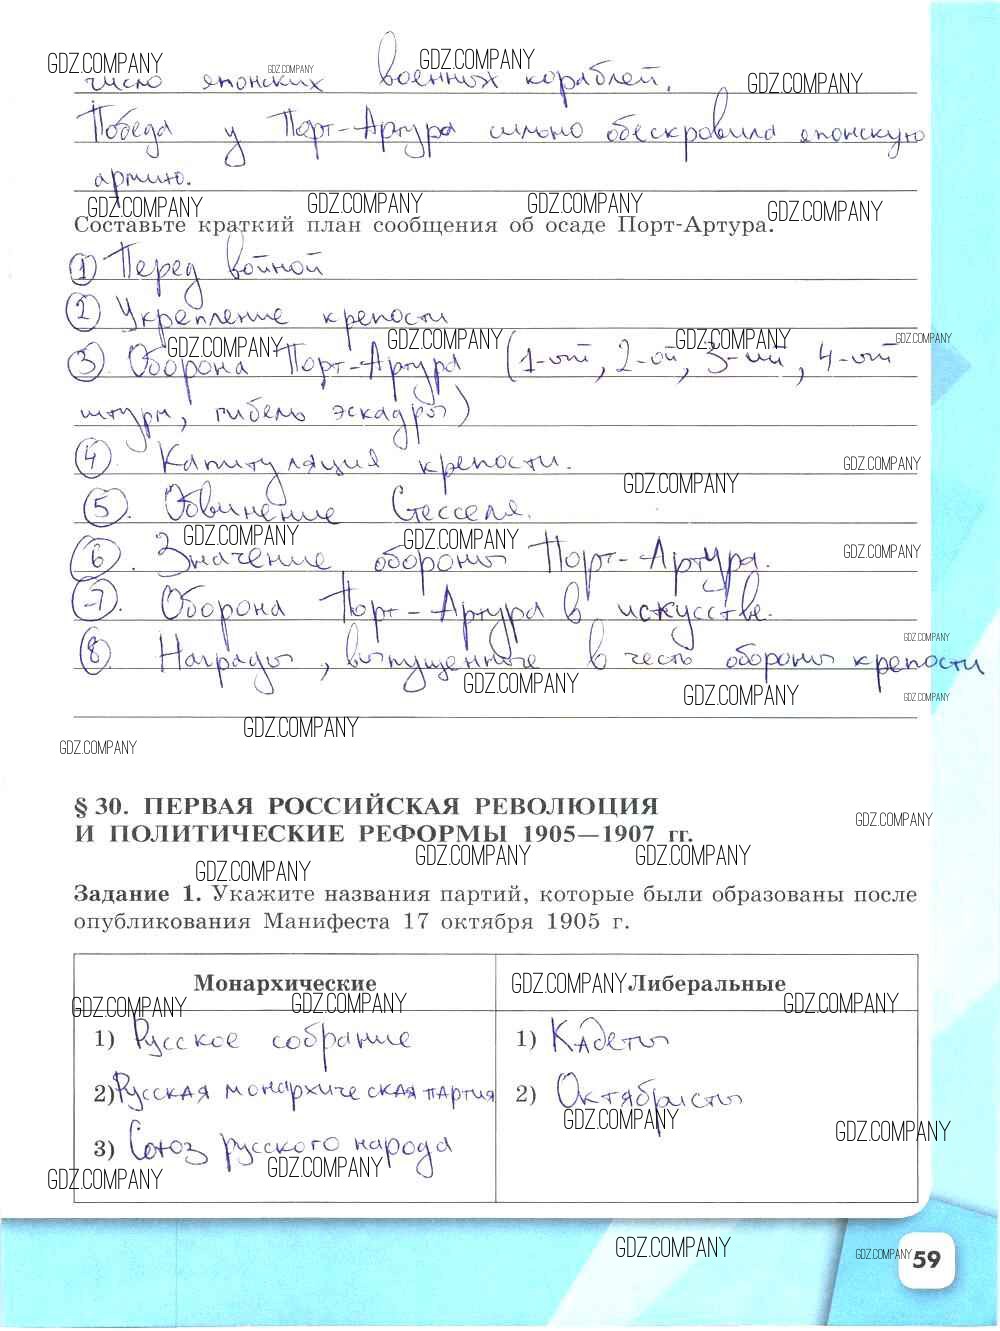 GDZ.COMPANY GDZ.COMPANY GDZ.COMPANY GDZ.COMPANY
число японских военных кораблей.
Победа у Порт-Артура сильно обескровила японскую
армию.
GDZ.COMPANY GDZ.COMPANY GDZ.COMPANY GDZ.COMPANY
Составьте краткий план сообщения об осаде Порт-Артура.
1 Перед войной
2 Укрепление крепости
GDZ.COMPANY GDZ.COMPANY GDZ.COMPANY GDZ.COMPANY
3. Оборона Порт-Артура (1-ой, 2-ой, 3-ий, 4-ой
штурм, гибель эскадры)
4. Капитуляция крепости.
GDZ.COMPANY GDZ.COMPANY
5. Обвинение Стесселя.
GDZ.COMPANY GDZ.COMPANY GDZ.COMPANY
6. Значение обороны Порт-Артура.
7. Оборона Порт-Артура в искусстве.
GDZ.COMPANY
8. Награды, выпущенные в честь обороны крепости
GDZ.COMPANY GDZ.COMPANY GDZ.COMPANY
GDZ.COMPANY GDZ.COMPANY
§ 30. ПЕРВАЯ РОССИЙСКАЯ РЕВОЛЮЦИЯ
И ПОЛИТИЧЕСКИЕ РЕФОРМЫ 1905—1907 гг.
GDZ.COMPANY GDZ.COMPANY GDZ.COMPANY GDZ.COMPANY
Задание 1. Укажите названия партий, которые были образованы после
опубликования Манифеста 17 октября 1905 г.
Монархические
GDZ.COMPANY GDZ.COMPANY
1) Русское собрание
2) Русская монархическая партия
3) Союз русского народа
GDZ.COMPANY GDZ.COMPANY
GDZ.COMPANY Либеральные
GDZ.COMPANY
1) Кадеты
2) Октябристы
GDZ.COMPANY GDZ.COMPANY
GDZ.COMPANY GDZ.COMPANY 59